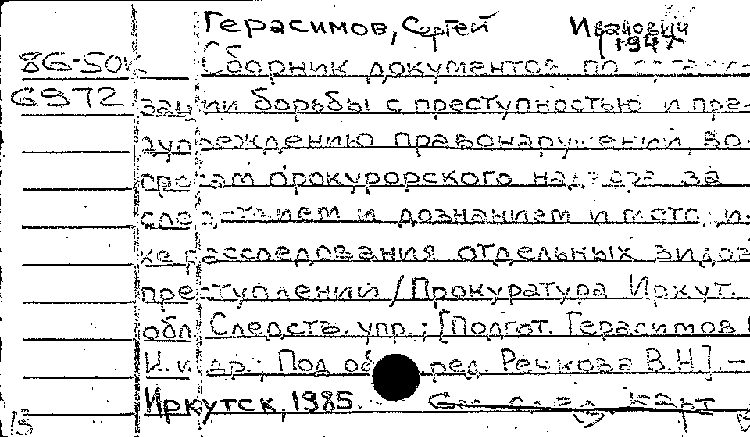 Герасимов, Сергей Иванович
1947
86-50к Сборник документов по органи-
6972 зации борьбы с преступностью и пре-
дупреждению правонарушений, во-
просам прокурорского надзора за
следствием и дознанием и методи-
ке расследования отдельных видов
преступлений / Прокуратура Иркут.
обл. Следств. упр.; [Подгот. Герасимов
И. и др.; Под общ. ред. Речкова В.Н]. -
Иркутск, 1985. След. карт